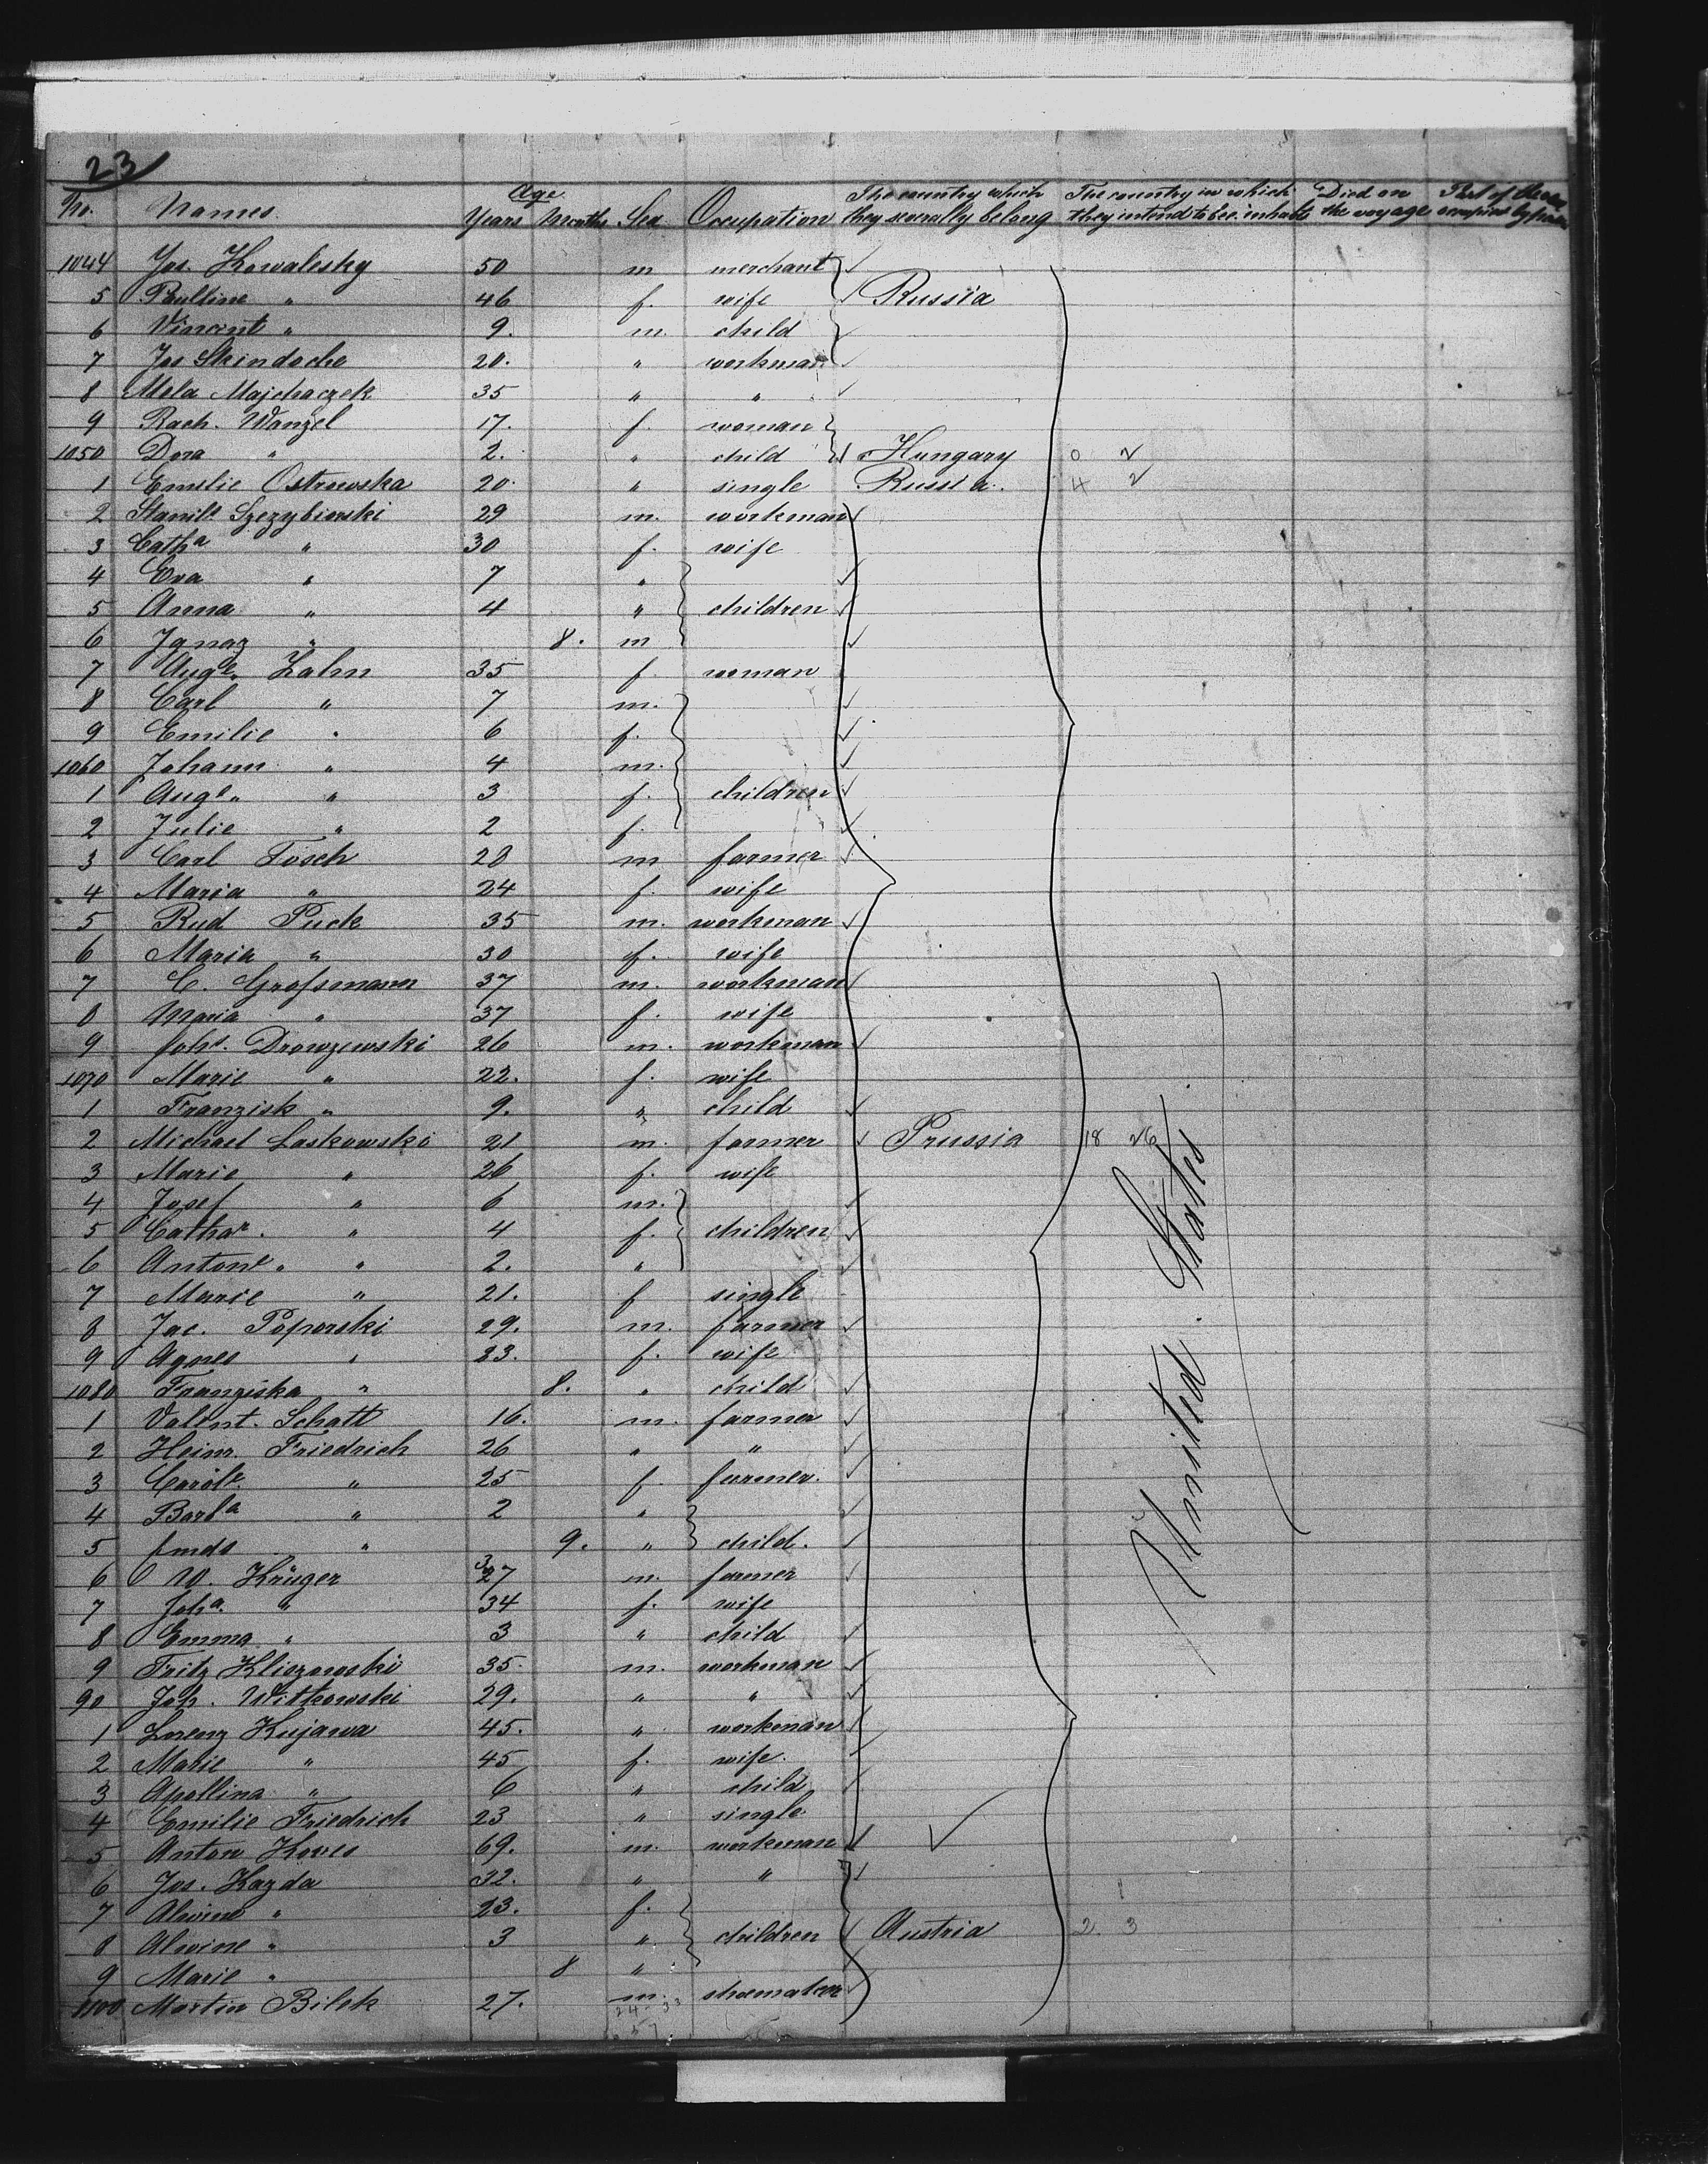 23
No. Names. Age Years Months Sex Occupation The country which they severally belong The country in which they intend to bec. inhabts Died on the voyage Part of the occupied by
1044 Jos. Kowalesky 50 m merchant
5 Pauline " 46 f. wife Russia
6 Vincent " 9. m. child
7 Jos Skindoche 20. " workman
8 Mela Majchaczek 35 " "
9 Rach. Wanzel 17. f. woman
1050 Dora " 2. " child Hungary 0 2
1 Emelie Ostrowska 20. " single Russia. 4 2
2 Stanils Szczybierski 29 m. workman
3 Catha " 30 f. wife
4 Eva " 7 "
5 Anna " 4 " children
6 Ignaz " 8. m
7 Auge. Zahn 35 f. woman
8 Carl " 7 m.
9 Emilie " 6 f.
1060 Johann " 4 m.
1 Auge. " 3 f. children
2 Julie " 2 f.
3 Carl Tosch 28 m farmer
4 Maria " 24 f. wife
5 Rud Puck 35 m. workman
6 Maria " 30 f. wife
7 C. Grossmann 37 m. workman
8 Maria " 37 f. wife
9 Johs. Drowzewski 26 m. workman
1070 Marie " 22. f. wife
1 Franzisk " 9. " child
2 Michael Laskowski 21 m. farmer Prussia 18 26
3 Marie " 26 f. wife
4 Josef " 6 m.
5 Cathar. " 4 f. children
6 Antone. " 2. "
7 Marie " 21. f single
8 Jac. Poporski 29. m. farmer
9 Agnes " 23. f. wife
1080 Franziska " 8. " child
1 Valent. Schatt 16. m. farmer
2 Heinr. Friedrich 26 " "
3 Carole. " 25 f. farmer.
4 Barba " 2 "
5 " 9. " child.
6 W. Krüger 37 m. farmer
7 Joha. " 34 f. wife
8 Emma " 3 " child
9 Fritz Kliszowski 35. m. workman
90 Joh. Witkowski 29. " "
1 Lorenz Kujawa 45. " workman
2 Marie " 45 f. wife.
3 Apollina " 6 " child
4 Emilie Friedrich 23 " single
5 Anton Kowes 69. m. workman
6 Jos. Kazda 32. " "
7 Alwine " 23. f.
8 Alwine " 3 " children Austria 2. 3
9 Marie " 8 "
1100 Martin Bilek 27. m. shoemaker
24-33
57
United States